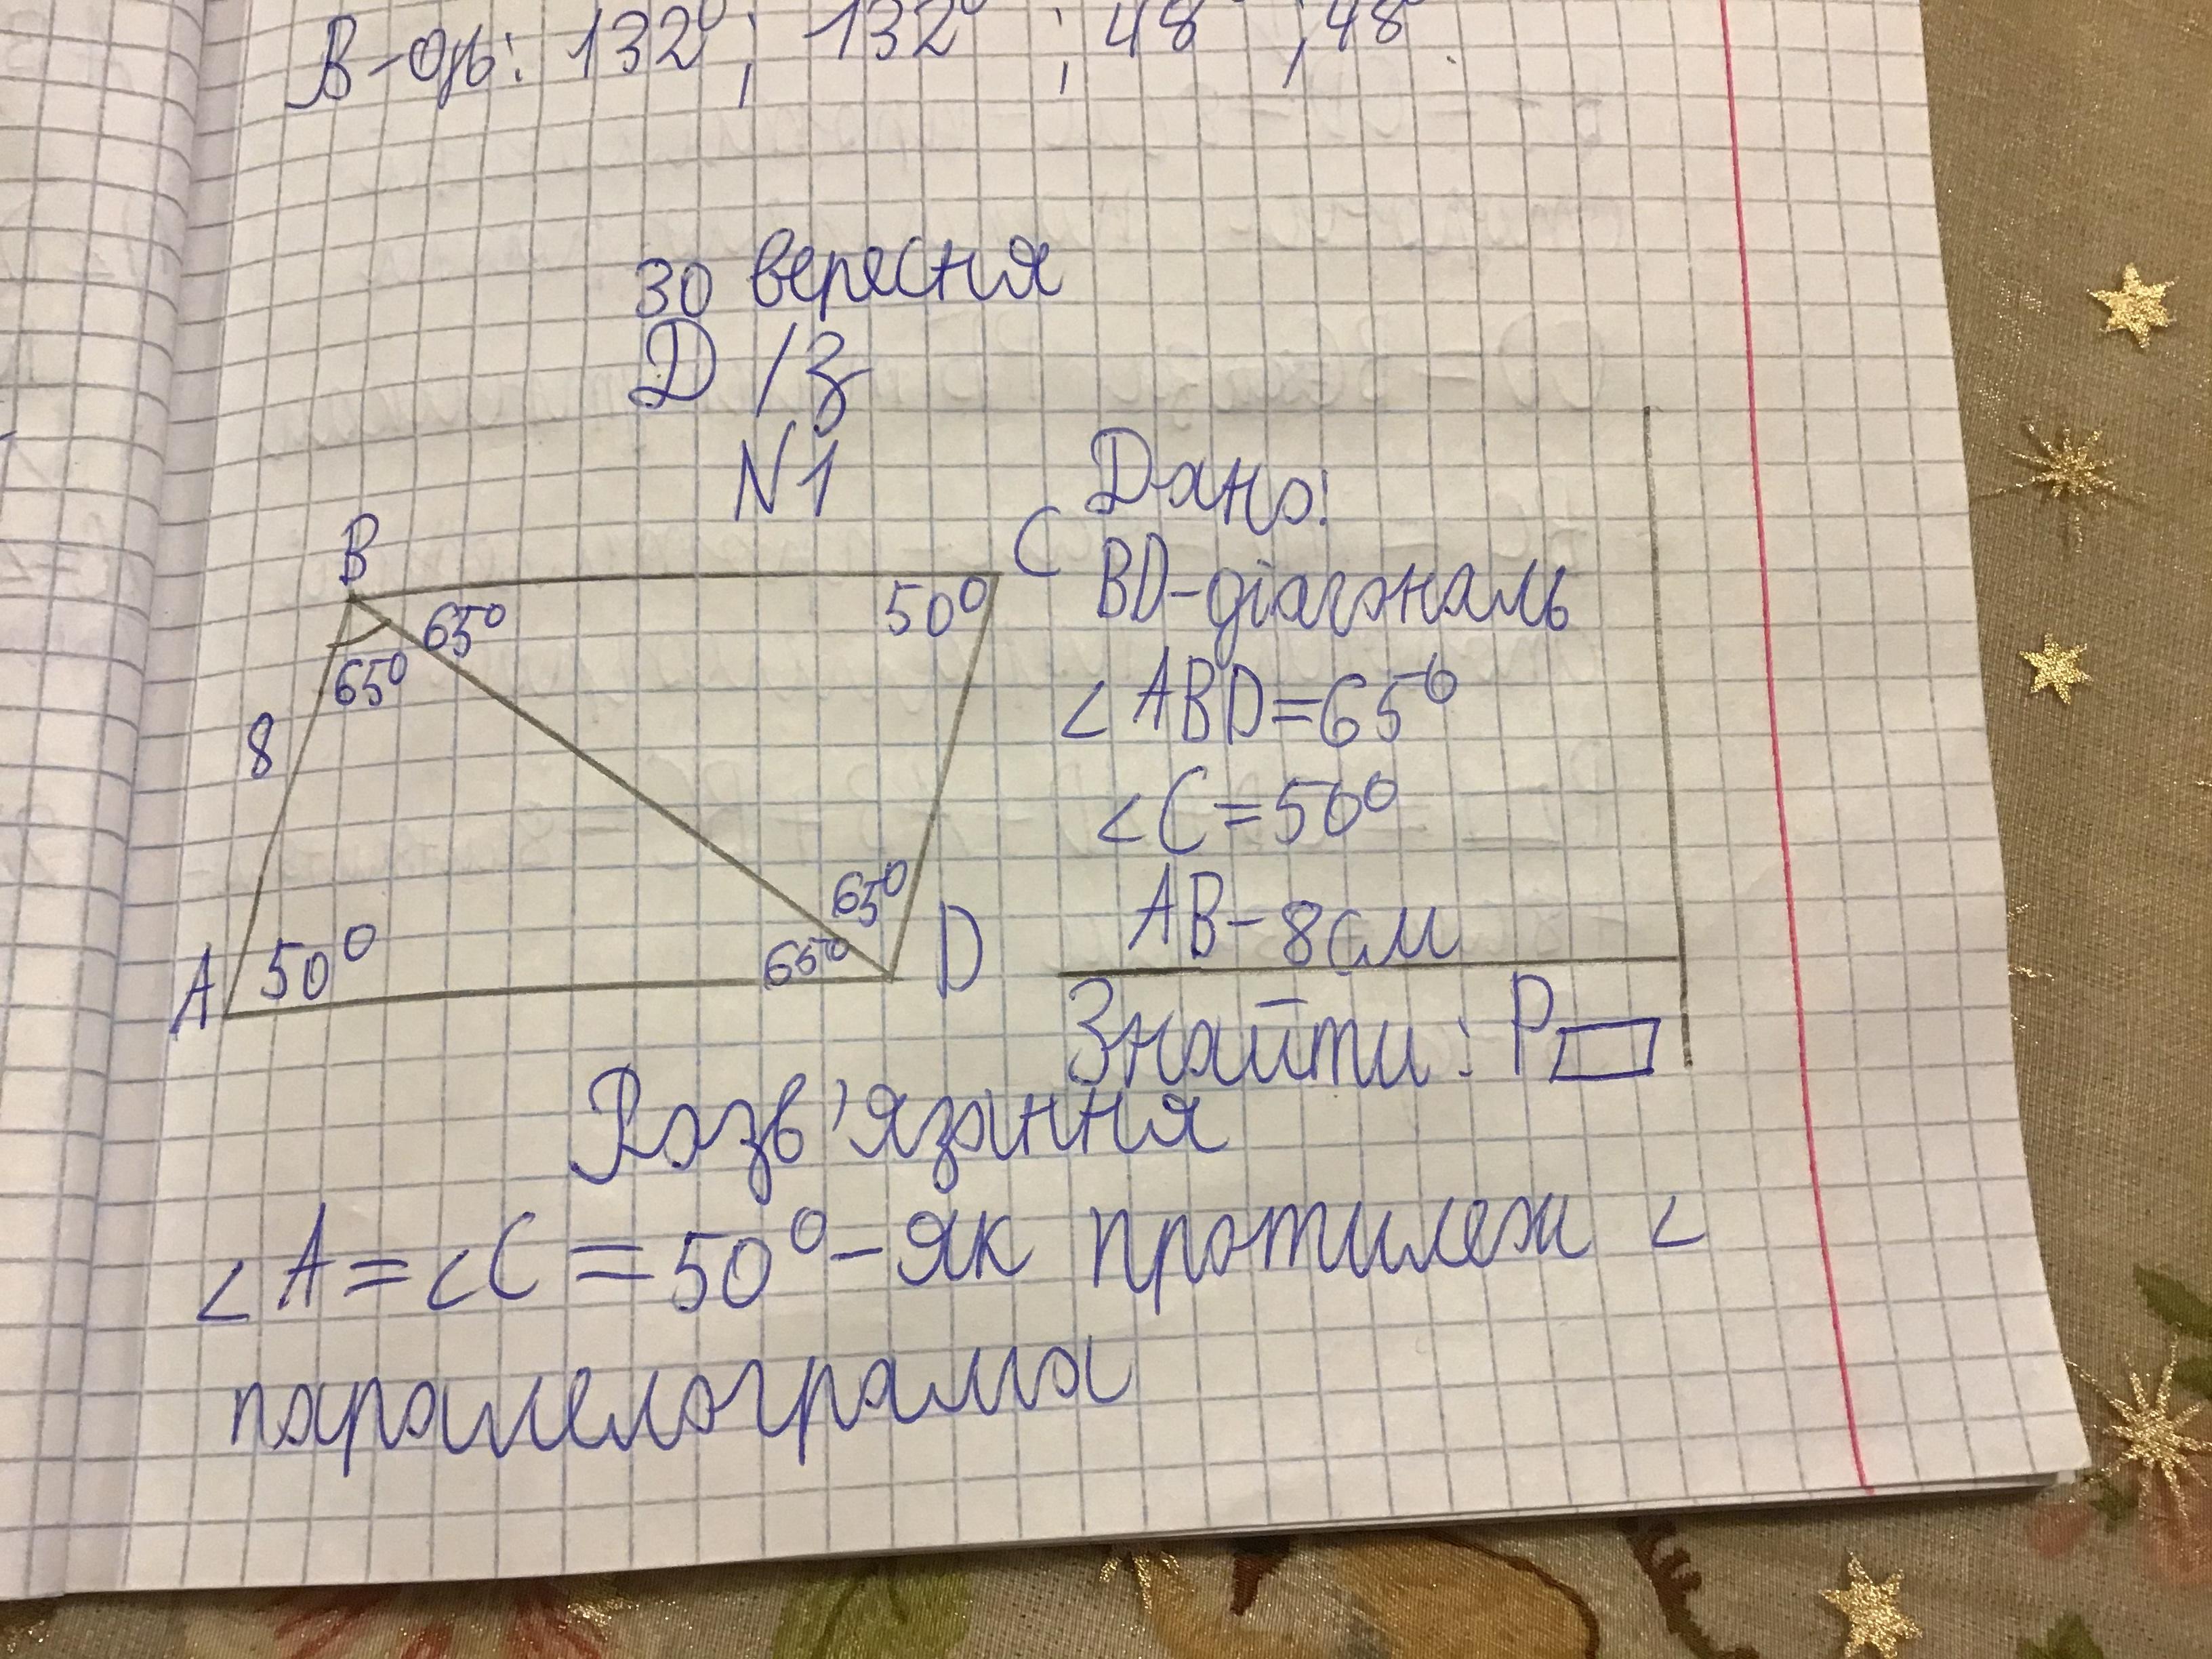 В-дь: 132°; 132°; 48°; 48°.
30 вересня
Д/з
N1
B
C
65°
65°
50°
8
A
50°
65°
65°
D
Дано:
BD-діагональ
∠ABD=65°
∠C=50°
AB-8см
Знайти: P▱
Розв'язання
∠A=∠C=50°-як протилежн ∠
паралелограма